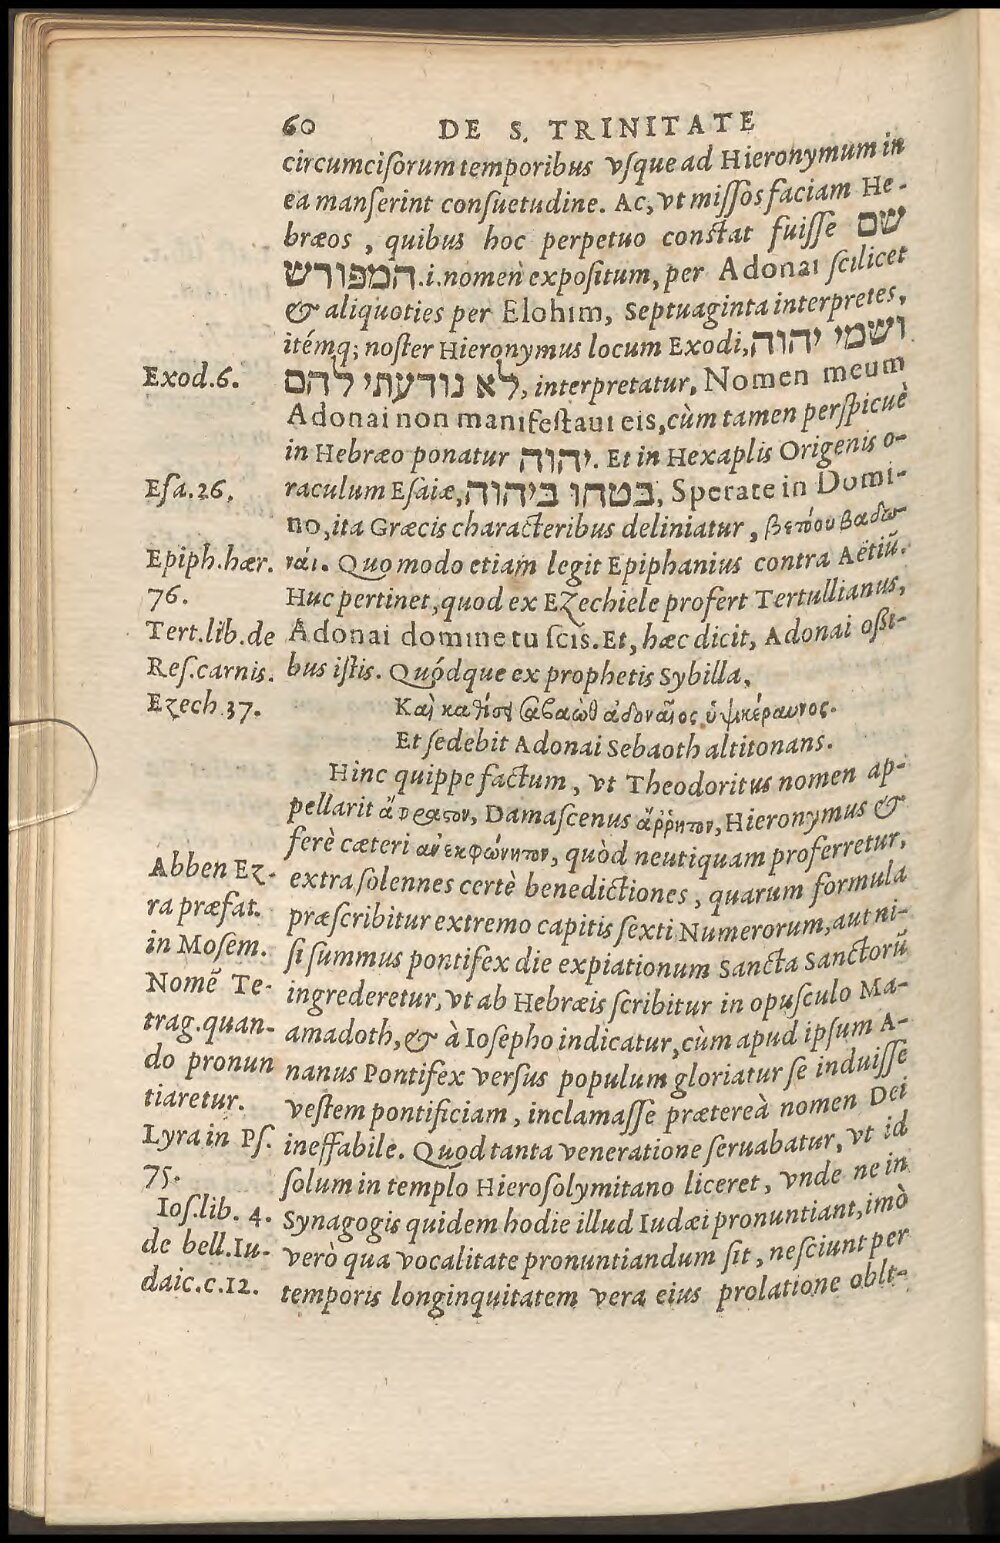 60 DE S. TRINITATE
circumciſorum temporibus vſque ad Hieronymum in
ea manſerint conſuetudine. Ac, vt miſſos faciam He-
bræos, quibus hoc perpetuo constat fuiſſe שם
המפורש.i.nomen expoſitum, per Adonai ſcilicet
& aliquoties per Elohim, Septuaginta interpretes,
itémq; noſter Hieronymus locum Exodi, ושמי יהוה
Exod.6.
לא נודעתי להם, interpretatur, Nomen meum
Adonai non manifeſtaui eis, cùm tamen perſpicuè
in Hebræo ponatur יהוה. Et in Hexaplis Origenis o-
Eſa.26.
raculum Eſaiæ, בטחו ביהוה, Sperate in Domi-
no, ita Græcis characteribus deliniatur, βετούου βαδω-
Epiph.hær.
ναί. Quomodo etiam legit Epiphanius contra Aëtiū.
76.
Huc pertinet, quod ex Ezechiele profert Tertullianus,
Tert.lib.de
Adonai domine tu ſcis. Et, hæc dicit, Adonai oſſi-
Reſ.carnis.
bus iſtis. Quódque ex prophetis Sybilla,
Ezech.37.
Καὶ καθίσῃ σαβαὼθ ἀδοναῖος ὑψικέραυνος.
Et ſedebit Adonai Sebaoth altitonans.
Hinc quippe factum, vt Theodoritus nomen ap-
pellarit ἄφραστον, Damaſcenus ἄῤῥητον, Hieronymus &
ferè cæteri ἀνεκφώνητον, quòd neutiquam proferretur,
Abben Ez-
extra ſolennes certè benedictiones, quarum formula
ra præfat.
præſcribitur extremo capitis ſexti Numerorum, aut ni-
in Moſem.
ſi ſummus pontifex die expiationum Sancta Sanctorū
Nomē Te-
ingrederetur, vt ab Hebræis ſcribitur in opuſculo Ma-
trag.quan-
amadoth, & à Ioſepho indicatur, cùm apud ipſum A-
do pronun
nanus Pontifex verſus populum gloriatur ſe induiſſe
tiaretur.
veſtem pontificiam, inclamaſſe prætereà nomen Dei
Lyra in Pſ.
ineffabile. Quod tanta veneratione ſeruabatur, vt id
75.
ſolum in templo Hieroſolymitano liceret, vnde ne in
Ioſ.lib. 4.
Synagogis quidem hodie illud Iudæi pronuntiant, imò
de bell.Iu-
verò qua vocalitate pronuntiandum ſit, neſciunt per
daic.c.12.
temporis longinquitatem vera eius prolatione obli-